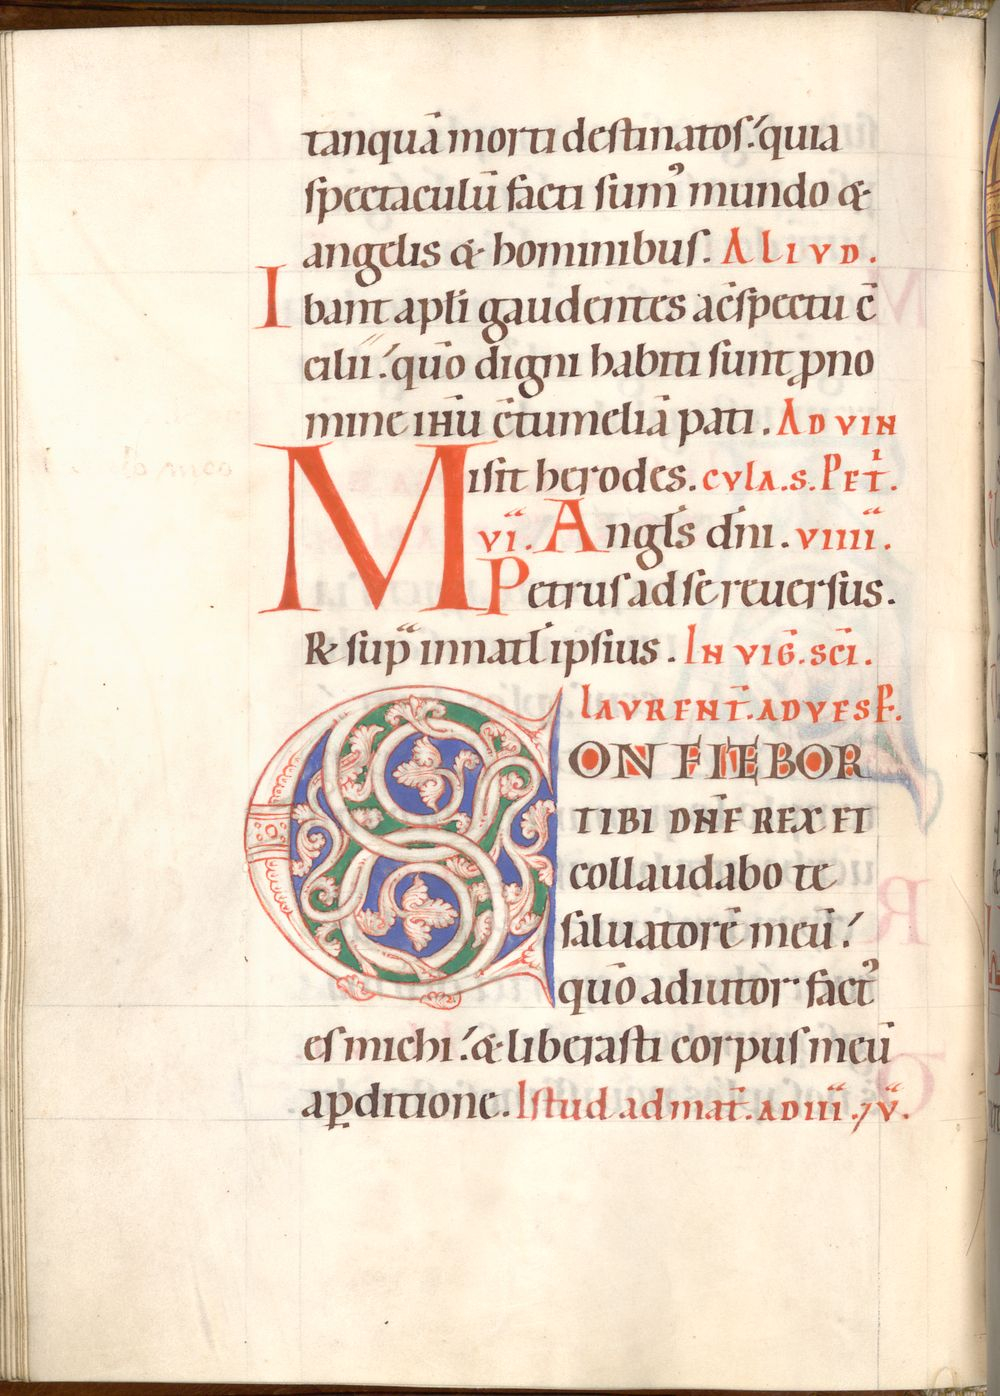 tanquā morti destinatos: quia
spectaculū facti sumꝰ mundo &
angelis & hominibus. ALIVD.
Ibant apl̄i gaudentes ac̄spectu c̄
cilii: quō digni habiti sunt ꝓ no
mine ihū c̄tumeliā pati. AD VIN
Misit herodes. CVLA. S. PET̄.
VI. Angl̄s dn̄i. VIIII.
Petrus ad se reuersus.
R& sup̄ in natl̄ ipsius. IN VIḠ. SC̄I.
LAVRENT̄. AD VESP̄.
CONFITEBOR
TIBI DN̄E REX ET
collaudabo te
saluatorē meū:
quō adiutor factꝰ
es michi: & liberasti corpus meū
a ꝑditione. Istud ad mat̄. AD III. ⁊ V.